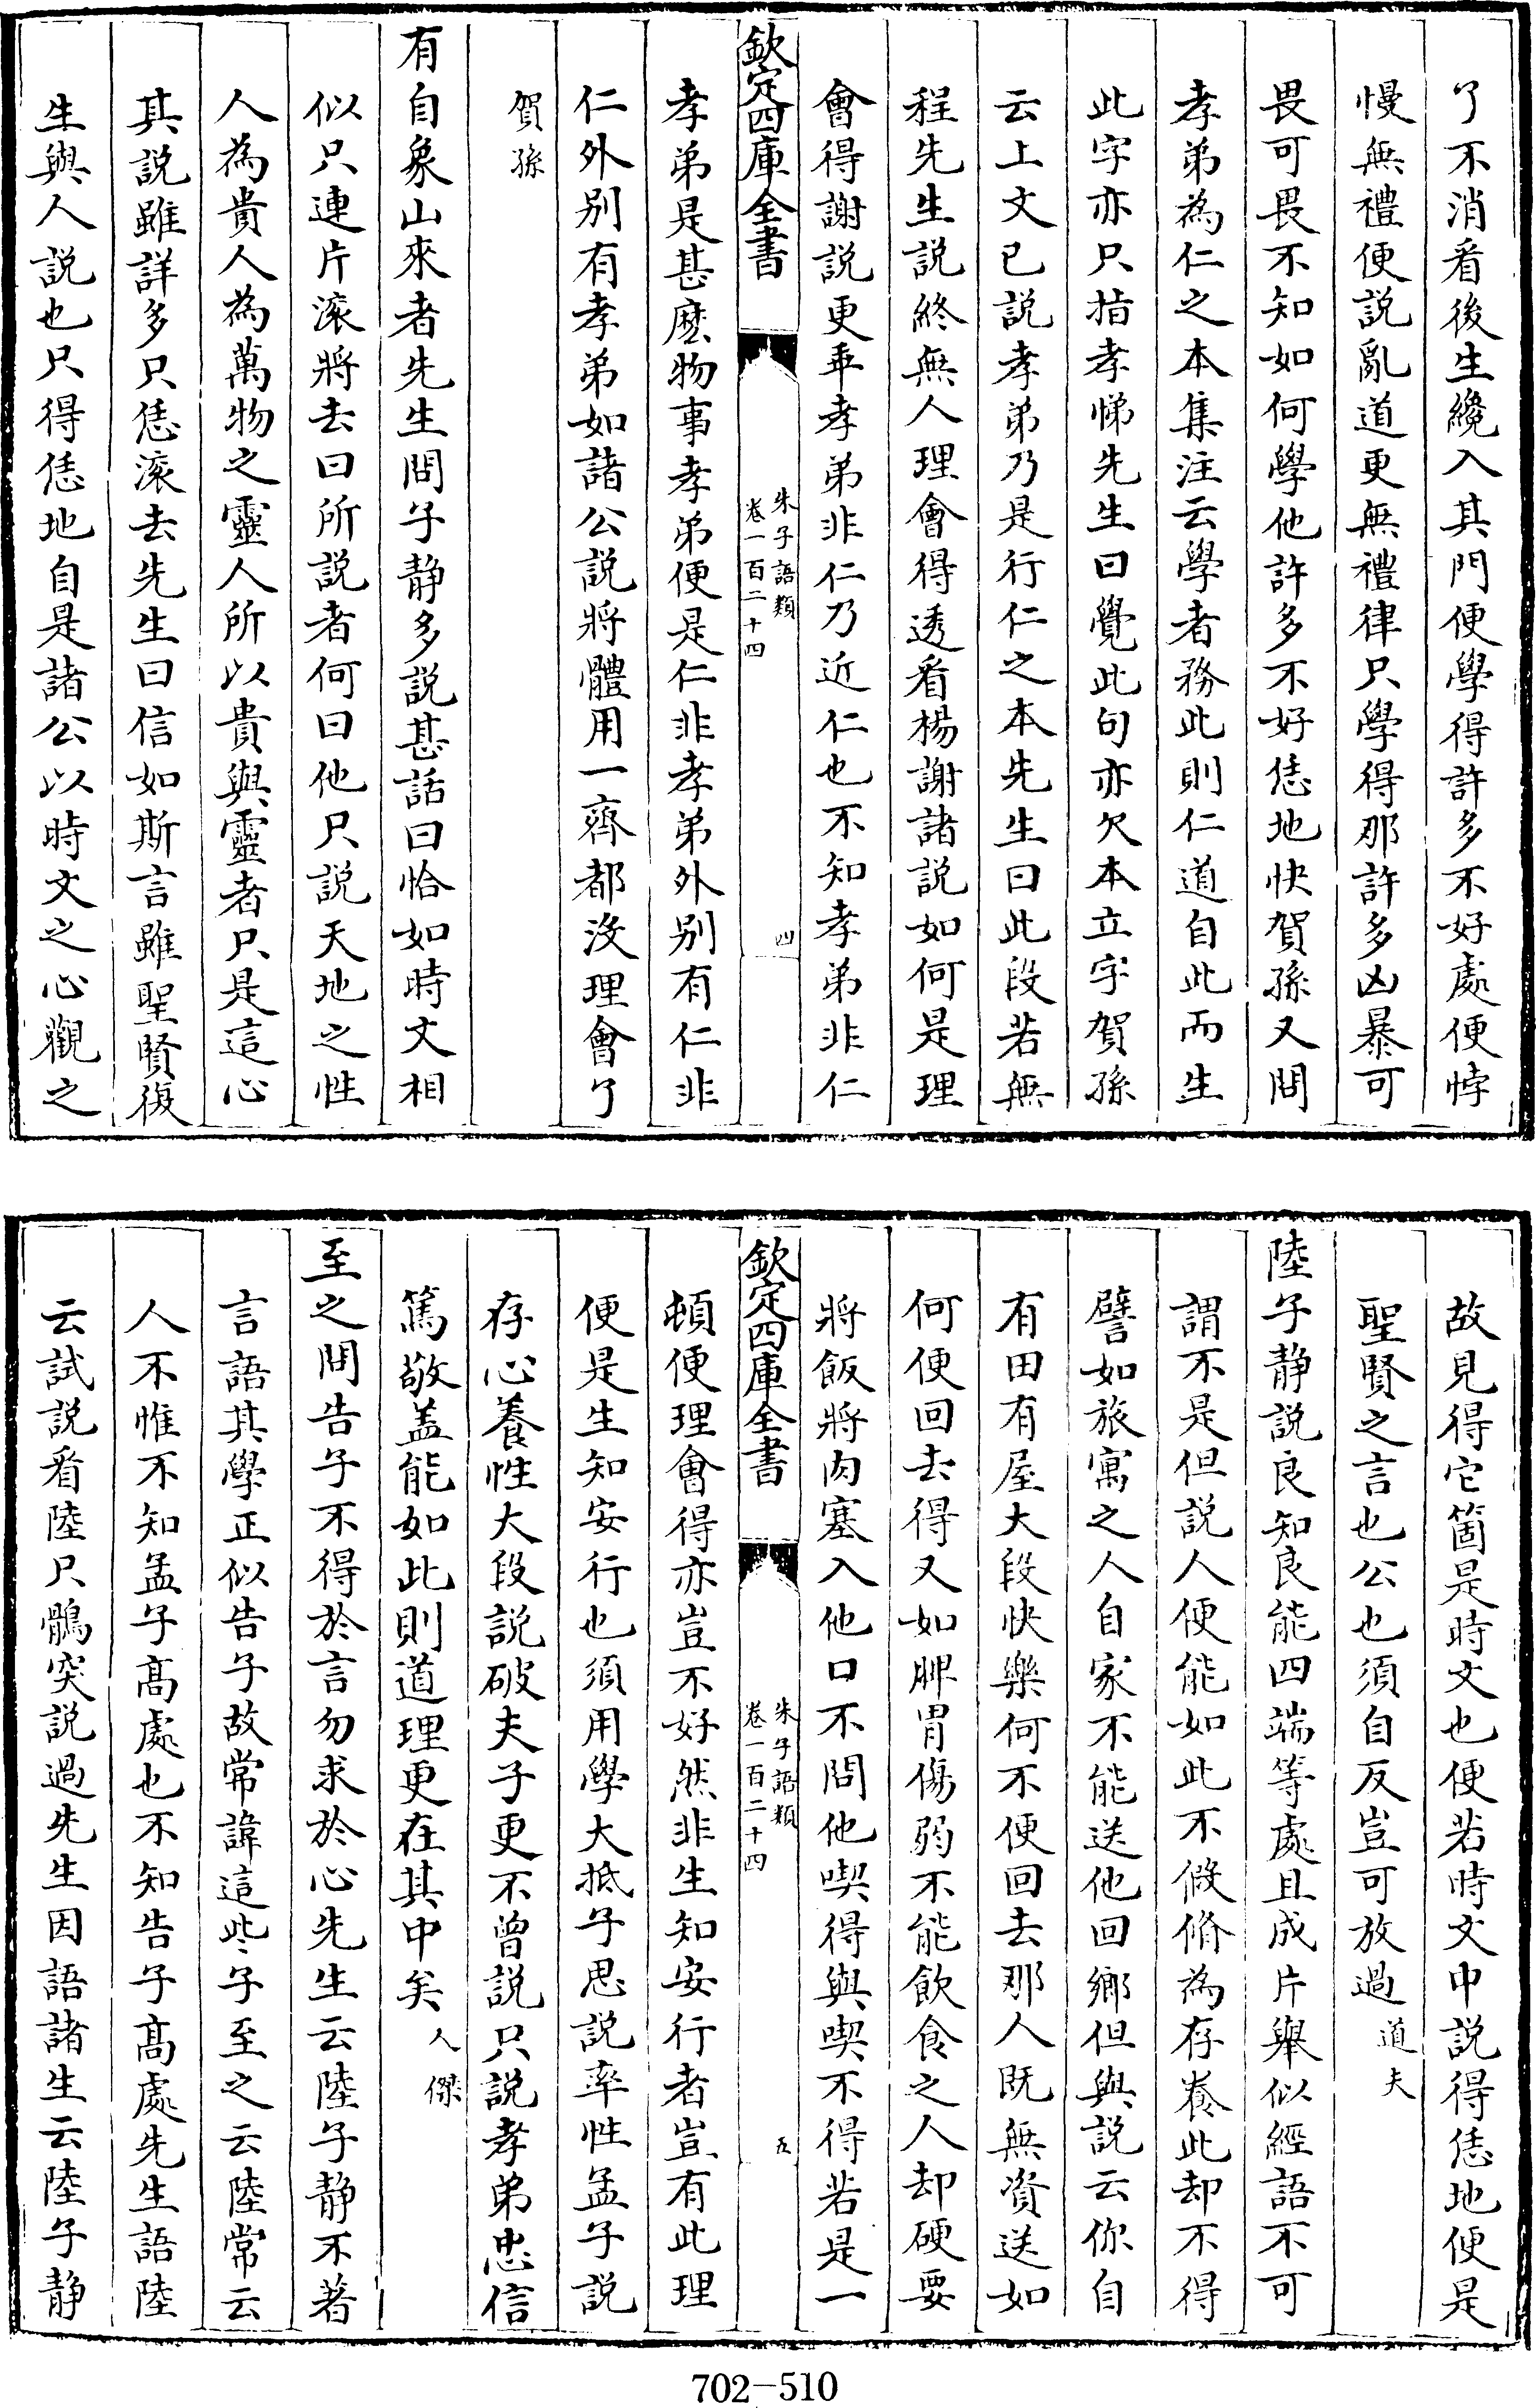 了不消看後生纔入其門便學得許多不好處便悖
慢無禮便説亂道更無禮律只學得那許多凶暴可
畏可畏不知如何學他許多不好恁地快賀孫又問
孝弟為仁之本集注云學者務此則仁道自此而生
此字亦只指孝悌先生曰覺此句亦欠本立字賀孫
云上文已説孝弟乃是行仁之本先生曰此段若無
程先生説終無人理會得透看楊謝諸説如何是理
會得謝説更乖孝弟非仁乃近仁也不知孝弟非仁
欽定四庫全書
朱子語類
卷一百二十四
四
孝弟是甚麽物事孝弟便是仁非孝弟外别有仁非
仁外别有孝弟如諸公説將體用一齊都没理會了
賀孫
有自象山來者先生問子静多説甚話曰恰如時文相
似只連片滚將去曰所説者何曰他只説天地之性
人為貴人為萬物之靈人所以貴與靈者只是這心
其説雖詳多只恁滚去先生曰信如斯言雖聖賢復
生與人説也只得恁地自是諸公以時文之心觀之
故見得它箇是時文也便若時文中説得恁地便是
聖賢之言也公也須自反豈可放過道夫
陸子静説良知良能四端等處且成片舉似經語不可
謂不是但説人便能如此不假脩為存養此却不得
譬如旅寓之人自家不能送他回鄉但與説云你自
有田有屋大段快樂何不便回去那人既無資送如
何便回去得又如脾胃傷弱不能飲食之人却硬要
將飯將肉塞入他口不問他喫得與喫不得若是一
欽定四庫全書
朱子語類
卷一百二十四
五
頓便理會得亦豈不好然非生知安行者豈有此理
便是生知安行也須用學大抵子思説率性孟子説
存心養性大段説破夫子更不曾説只説孝弟忠信
篤敬盖能如此則道理更在其中矣人傑
至之問告子不得於言勿求於心先生云陸子静不著
言語其學正似告子故常諱這些子至之云陸常云
人不惟不知孟子髙處也不知告子髙處先生語陸
云試説看陸只鶻突説過先生因語諸生云陸子静
702-510